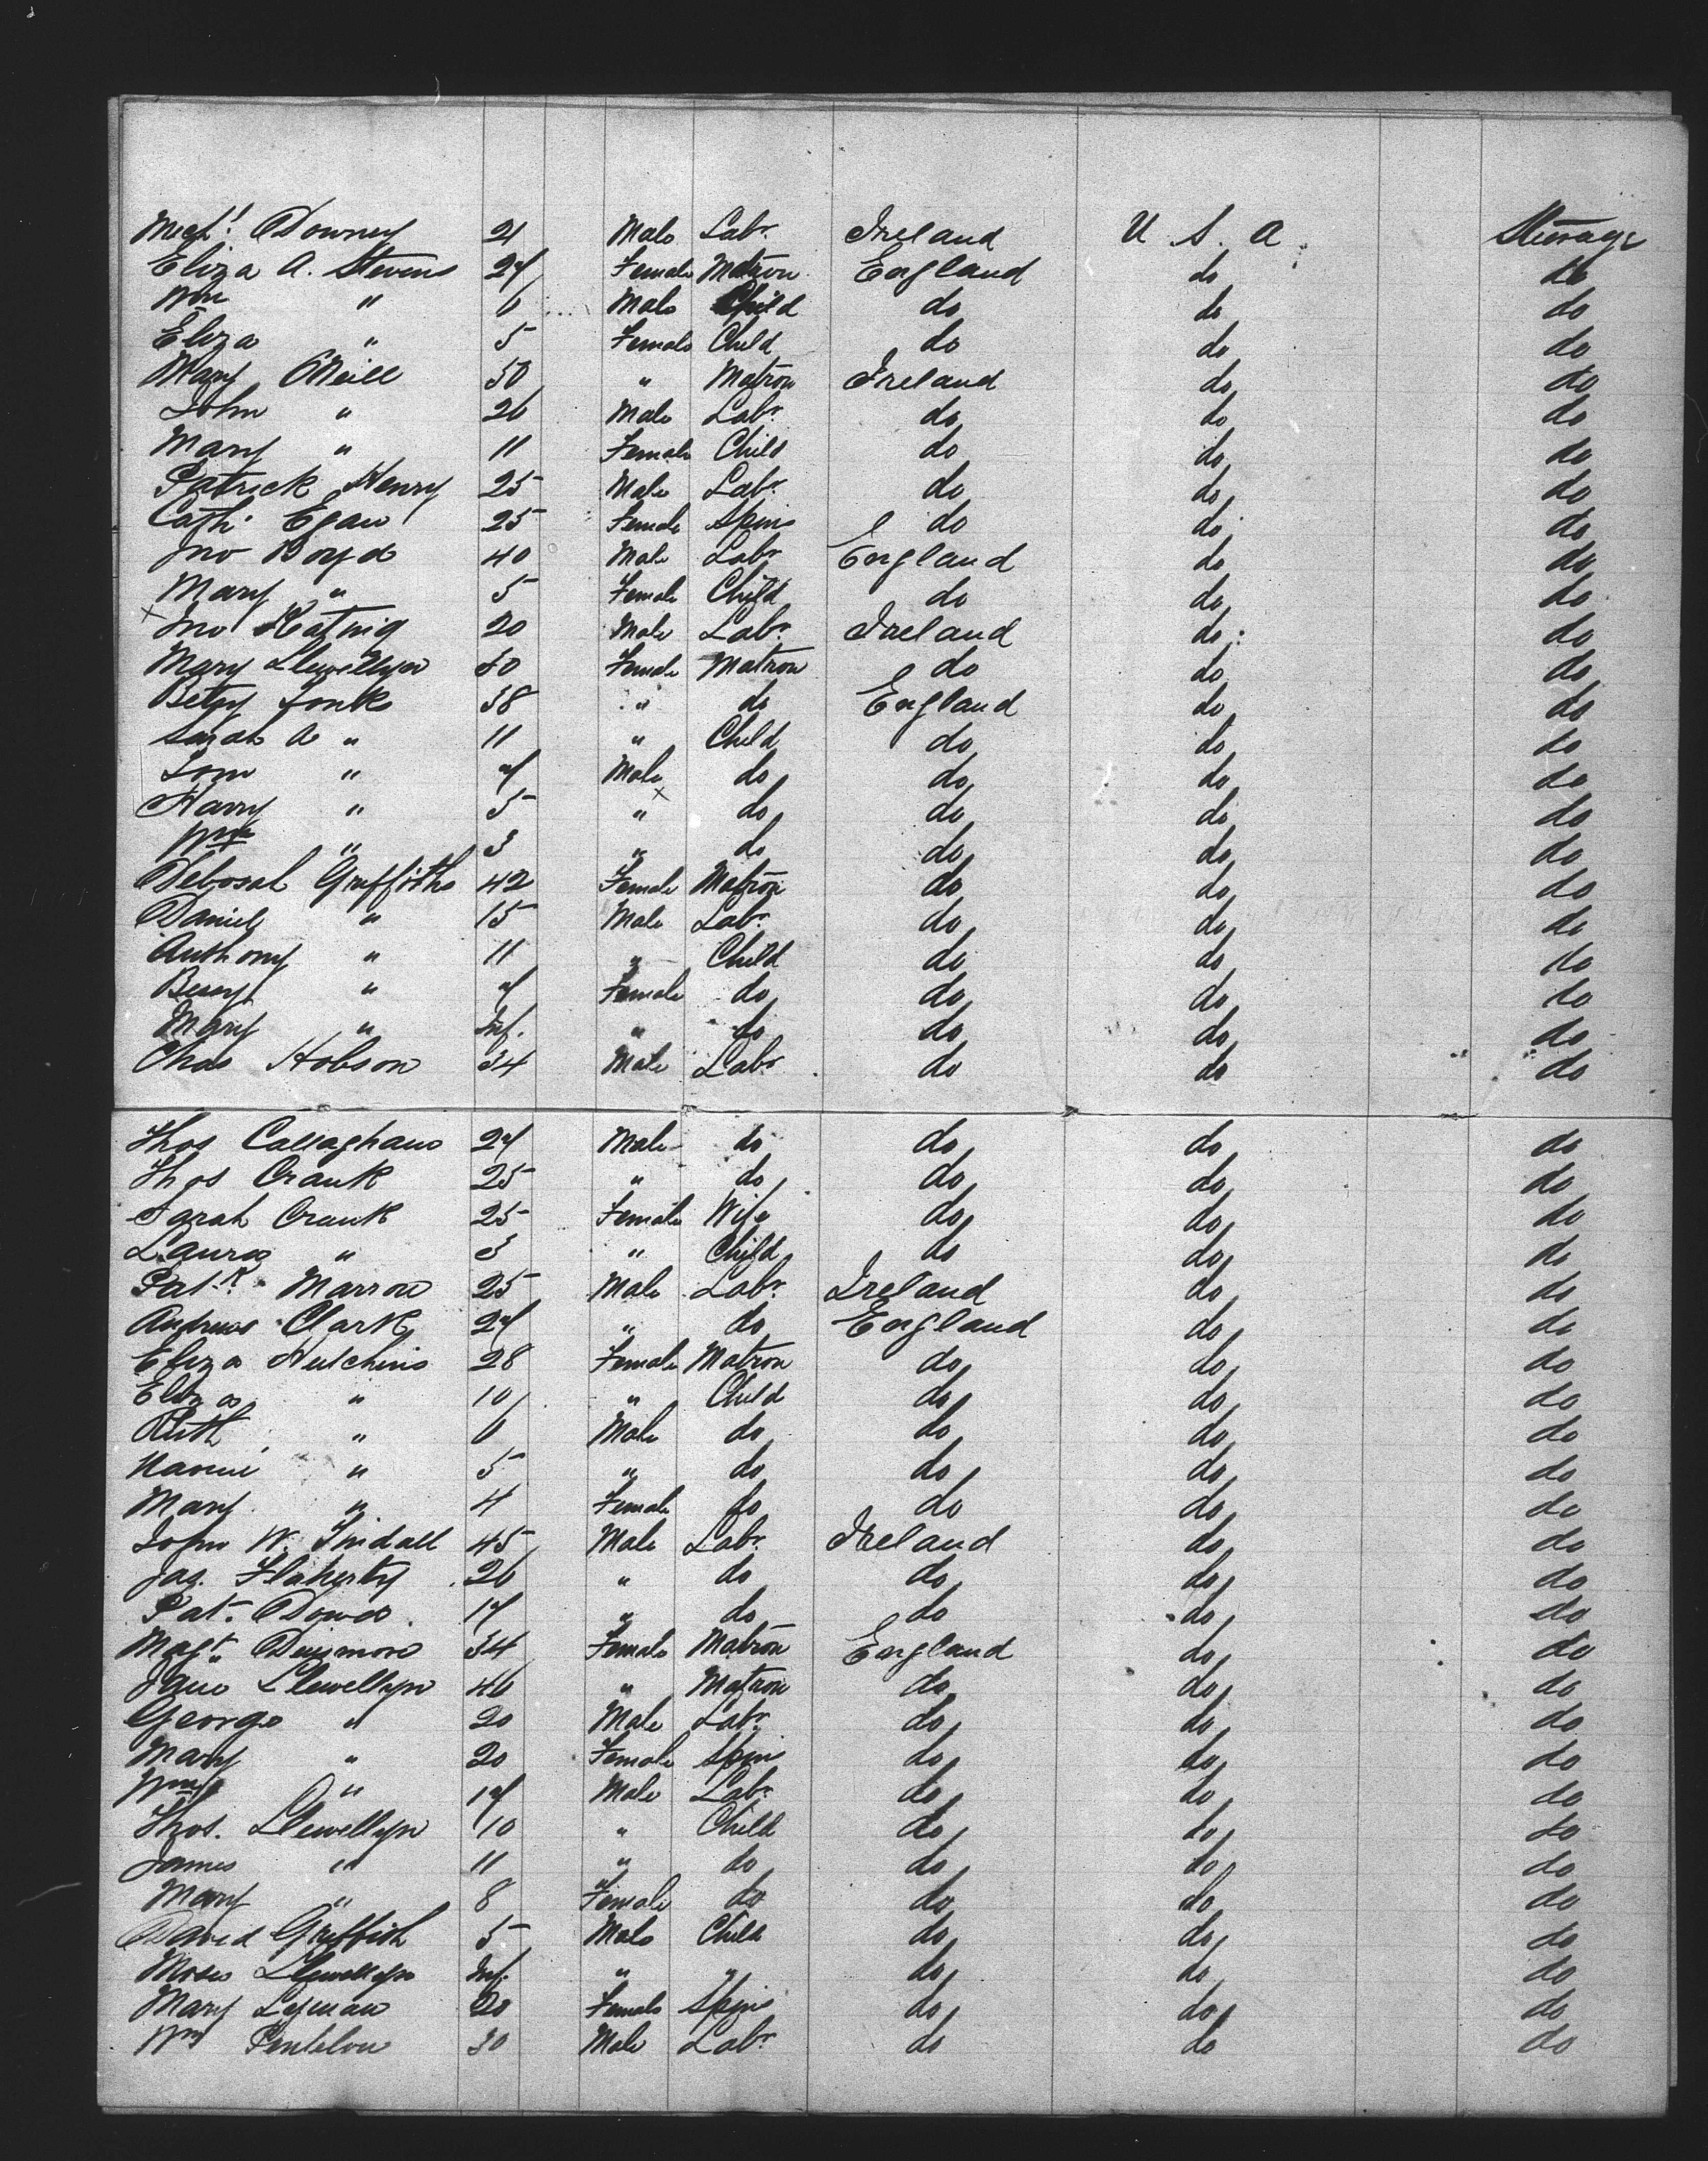 Mich! Downey 21 Male Labr. Ireland U. S. A. Steerage
Eliza A. Stevens 27 Female Matron England do do
Wm " 6 Male Child do do do
Eliza " 5 Female Child do do do
Mary O'Neill 50 " Matron Ireland do do
John " 26 Male Labr. do do do
Mary " 11 Female Child do do do
Patrick Henry 25 Male Labr. do do do
Cath. Egan 25 Female Spins do do do
Jno Boyd 40 Male Labr England do do
Mary " 5 Female Child do do do
x Jno Keating 20 Male Labr. Ireland do do
Mary Llewellyn 50 Female Matron do do do
Betsy Jonks 38 " do England do do
Sarah A " 11 " Child do do do
Tom " 7 Male do do do do
Harry " 5 " do do do do
Wm " 3 " do do do do
Deborah Griffiths 42 Female Matron do do do
Daniel " 15 Male Labr. do do do
Anthony " 11 " Child do do do
" 7 Female do do do do
Mary " Inf. " do do do do
Chas Hobson 34 Male Labr do do do
Thos Callaghan 27 Male do do do do
Thos Crank 25 " do do do do
Sarah Crank 25 Female Wife do do do
Laura " 3 " Child do do do
Patk. Marron 25 Male Labr. Ireland do do
Andrew Clark 27 " do England do do
Eliza Hutchins 28 Female Matron do do do
Eliza " 10 " Child do do do
Ruth " 6 Male do do do do
" 5 " do do do do
Mary " 4 Female do do do do
John W. Tindall 45 Male Labr. Ireland do do
Jas. Flaherty 26 " do do do do
Pat. Dowd 17 " do do do do
Magt. Dinsmore 34 Female Matron England do do
Jane Llewellyn 46 " Matron do do do
George " 20 Male Labr. do do do
Mary " 20 Female Spins do do do
Wm " 17 Male Labr. do do do
Thos. Llewellyn 10 " Child do do do
James " 11 " do do do do
Mary " 8 Female do do do do
David Griffith 5 Male Child do do do
Moses Llewellyn Inf. " " do do do
Mary Lyman 20 Female Spins do do do
Wm 30 Male Labr do do do